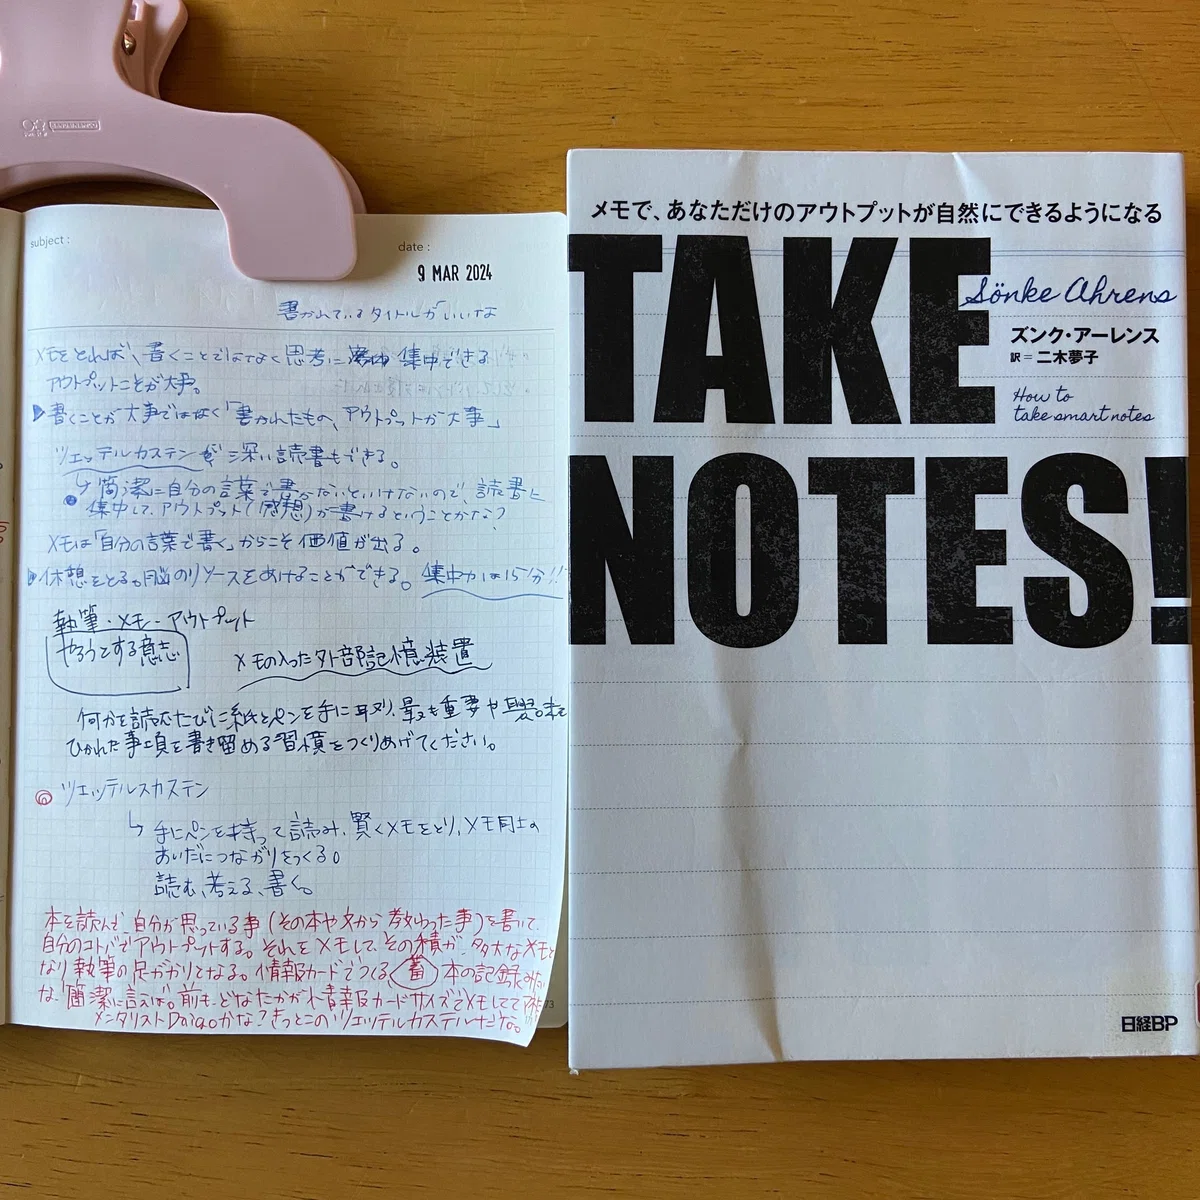 subject :
date :
9 MAR 2024
書かれているタイトルがいいな
メモをとれば、書くことではなく思考に集中できる
アウトプットことが大事。
書くことが大事ではなく「書かれたもの、アウトプットが大事」
ツェッテルカステンで深い読書もできる。
簡潔に自分の言葉で書かないといけないので、読書に
集中して、アウトプット(感想)が書けるということかな?
メモは「自分の言葉で書く」からこそ価値が出る。
休憩をとる。脳のリソースをあけることができる。集中力は15分!!
執筆・メモ・アウトプット
やろうとする意志
メモの入った外部記憶装置
何かを読むたびに紙とペンを手に取り、最も重要や興味を
ひかれた事項を書き留める習慣をつくりあげてください。
ツェッテルスカステン
手にペンを持って読み、賢くメモをとり、メモ同士の
あいだにつながりをつくる。
読む、考える、書く。
本を読んで、自分が思っている事(その本や文から教わった事)を書いて、
自分のコトバでアウトプットする。それをメモして、その積が、多大なメモと
なり執筆の足がかりとなる。情報カードでつくる 蓄 本の記録みたい
な。簡潔に言えば。前も、どなたかが情報カードサイズでメモしてて
メンタリストDaiGoかな?きっとこのツェッテルカステルだな。
73
メモで、あなただけのアウトプットが自然にできるようになる
TAKE
Sönke Ahrens
ズンク・アーレンス
訳=二木夢子
How to
take smart notes
NOTES!
日経BP